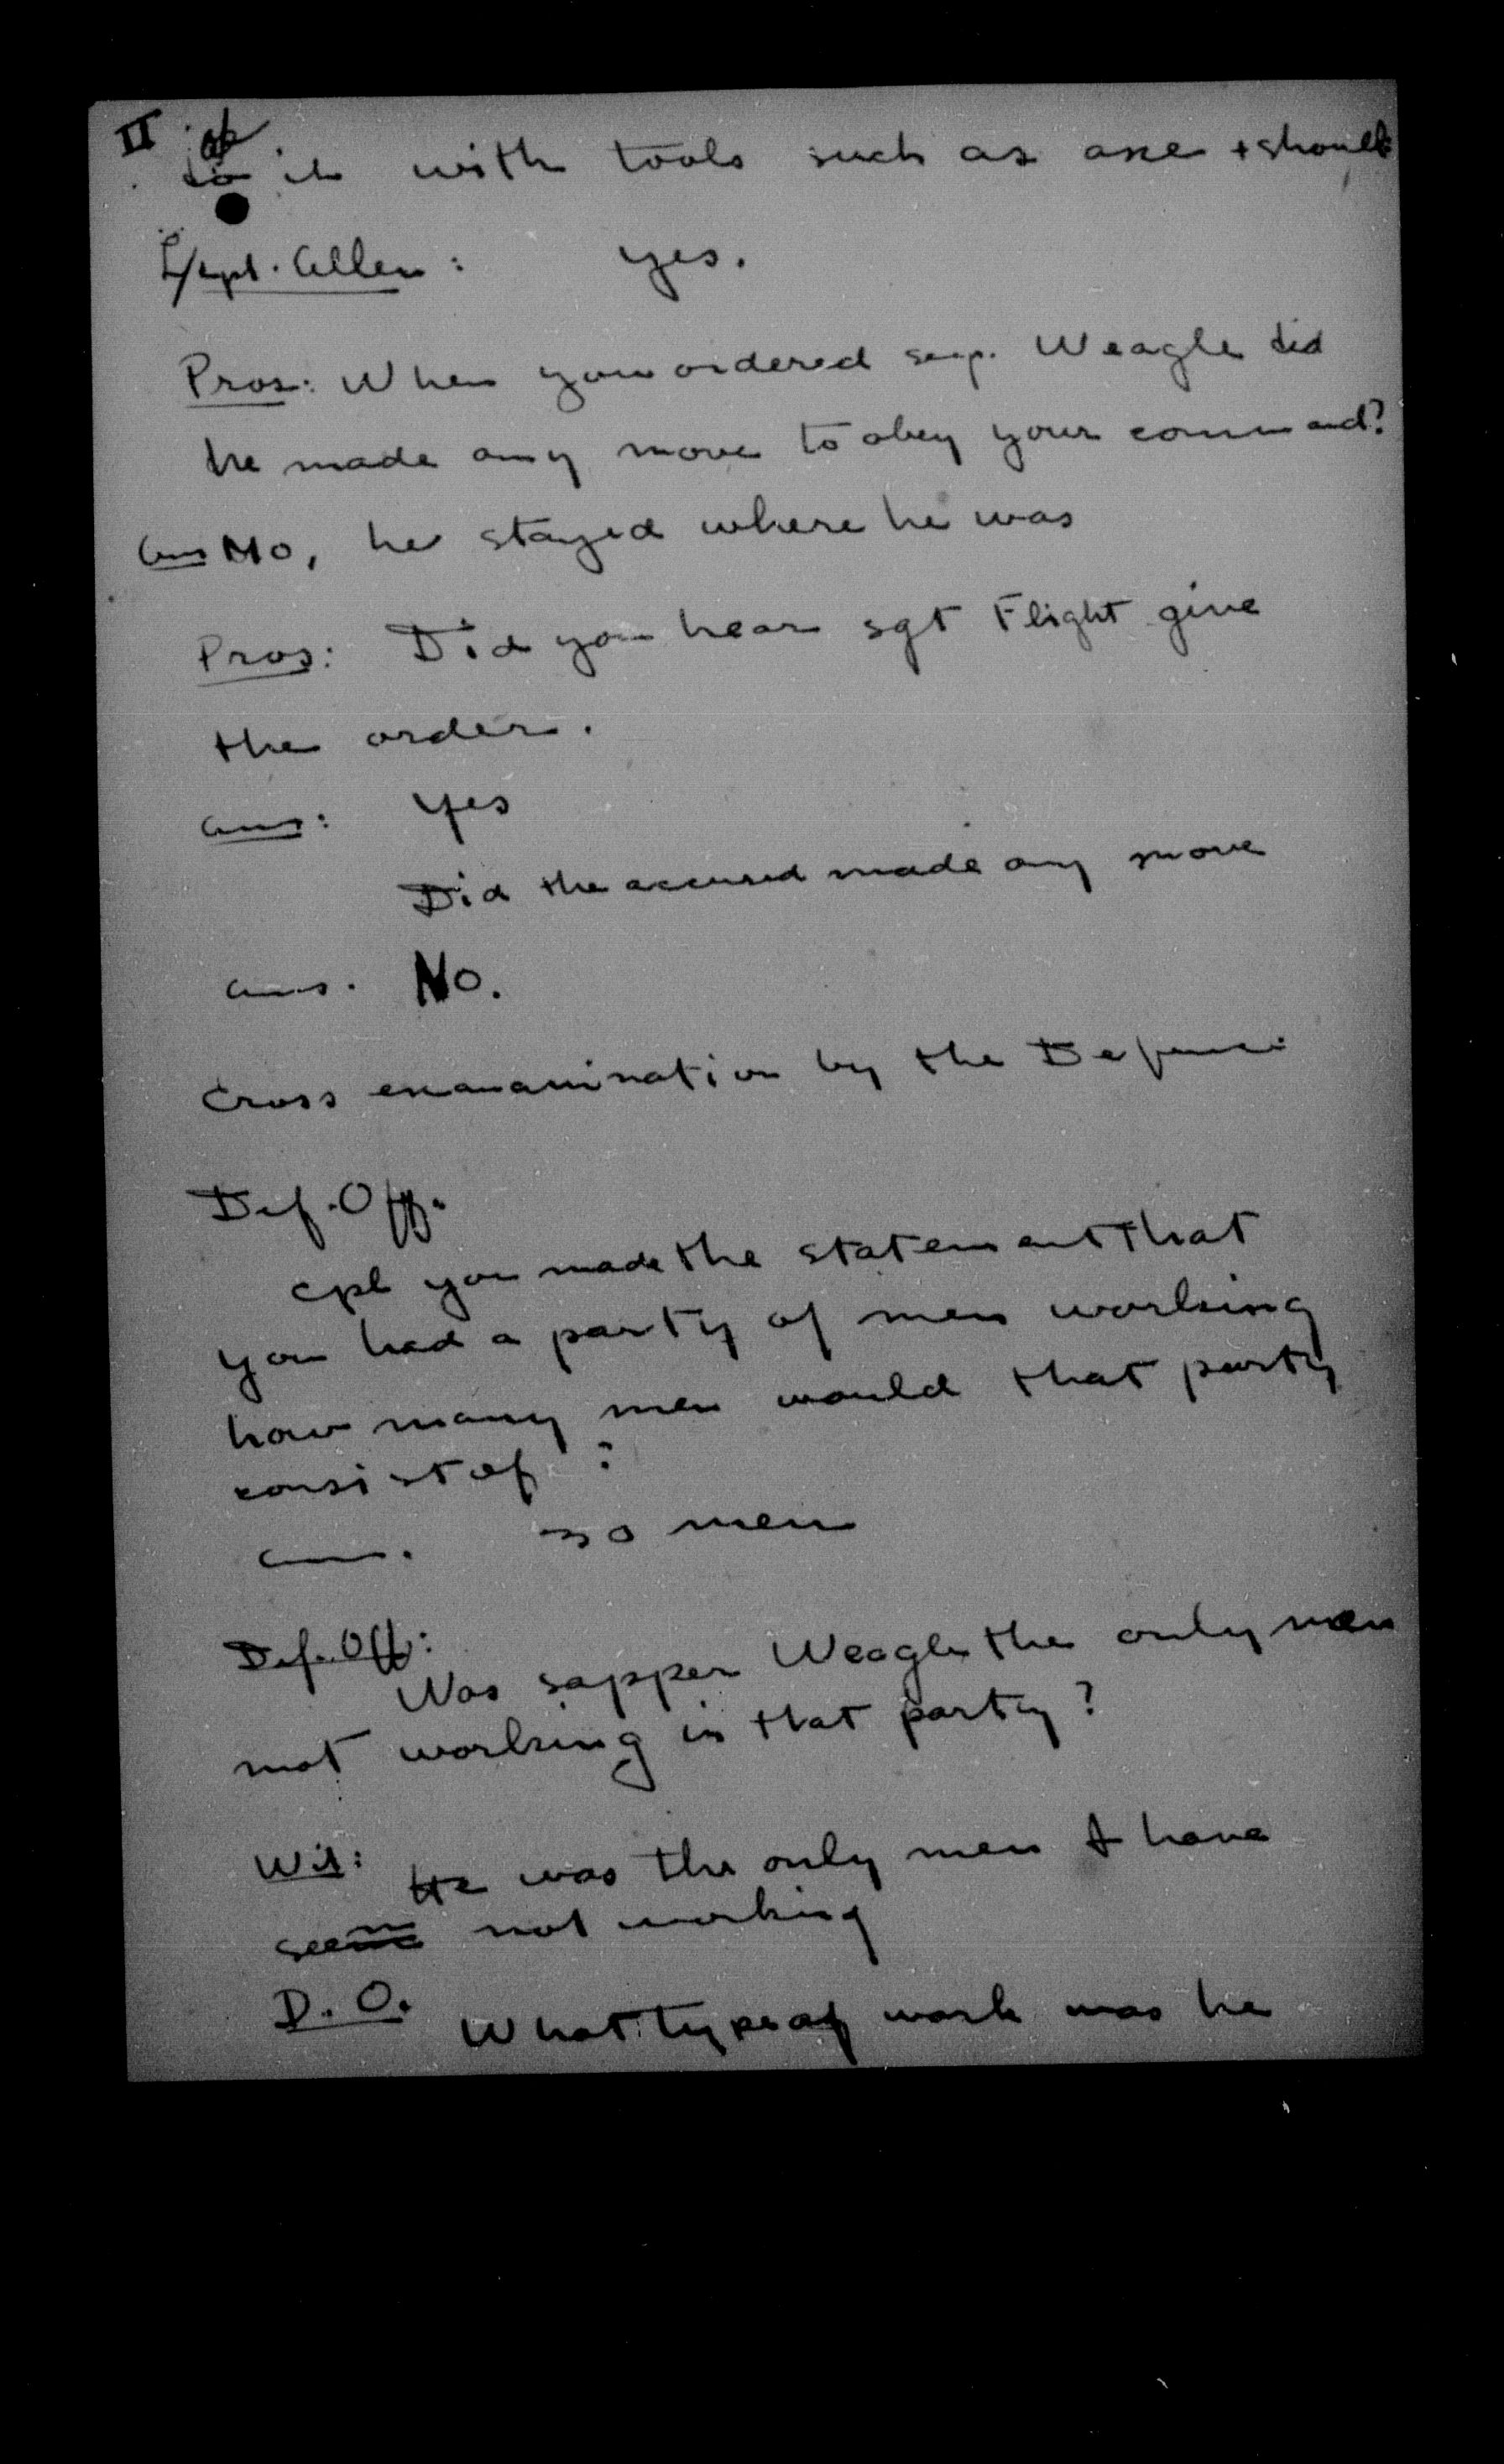 II of
do it with tools such as axe + shovel
L/Cpl. Allen: Yes.
Pros: When you ordered sap. Weagle did
he made any move to obey your command?
Ans No, he stayed where he was
Pros: Did you hear sgt Flight give
the order.
Ans: Yes
Did the accused made any move
Ans. No.
Cross examamination by the Defence:
Def. Off.
Cpl you made the statement that
you had a party of men working
how many men would that party
consist of ?
Ans. 30 men
Def. Off:
Was sapper Weagle the only men
not working in that party?
Wit: He was the only men I have
seen not working
D.O. What type of work was he